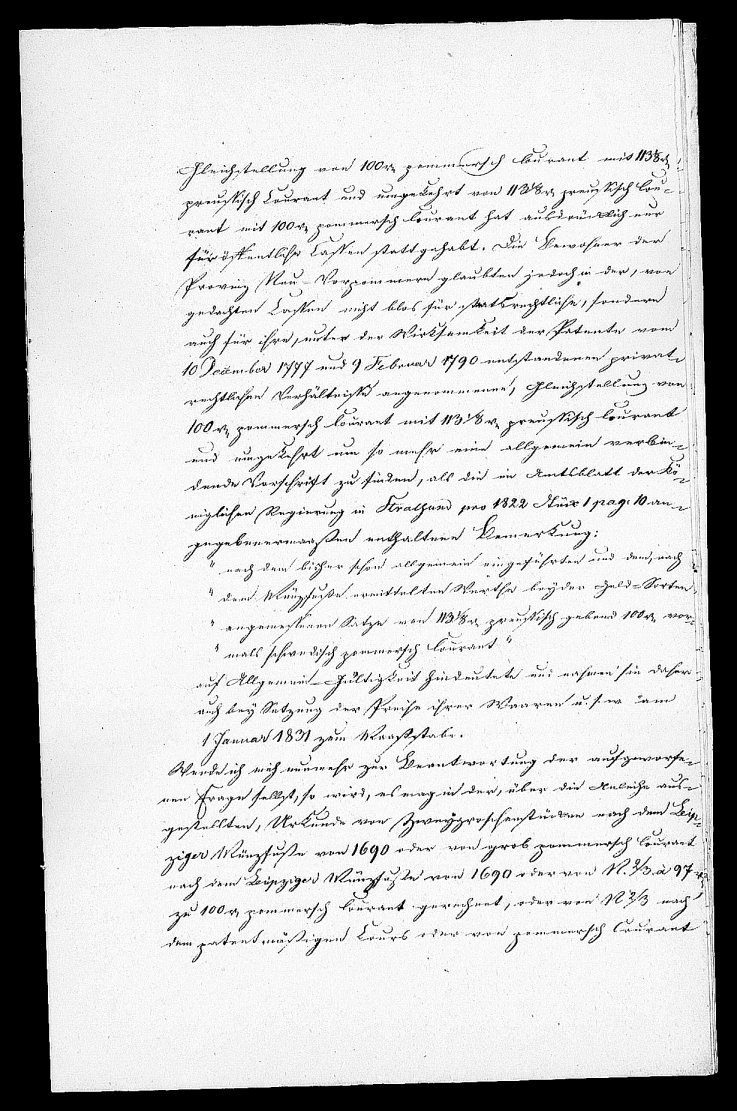 Gleichstellung von 100 rt pommersch Courant mit 113⅛ rt
preussisch Courant und umgekehrt von 113⅛ rt preussisch Cou-
rant mit 100 rt pommersch Courant hat ausdrücklich nur
für öffentliche Cassen stattgehabt. Die Bewohner der
Provinz Neu-Vorpommern glaubten jedoch in der, von
gedachten Cassen nicht blos für staatsrechtliche, sondern
auch für ihre, unter der Wirksamkeit der Patente vom
10 December 1777 und 9 Februar 1790 entstandenen privat-
rechtlichen Verhältnisse angenommenen, Gleichstellung von
100 rt pommersch Courant mit 113⅛ rt preussisch Courant
und umgekehrt um so mehr eine allgemein verbin-
dende Vorschrift zu finden, als die im Amtsblatt der Kö-
niglichen Regierung in Stralsund pro 1822 Stück 1 pag: 10 an-
gegebenermaaßen enthaltene Bemerkung:
" nach dem bisher schon allgemein eingeführten und dem, nach
" dem Münzfuße ermittelten Werthe beyder Geld-Sorten
" angemessenen Satze von 113⅛ rt preussisch gebend 100 rt vor-
" mals schwedisch pommersch Courant "
auf Allgemein-Gültigkeit hindeutete und nahmen sie daher
auch bey Setzung der Preise ihrer Waaren u. s. w. am
1 Januar 1831 zum Maaßstabe.
Wende ich mich nunmehr zur Beantwortung der aufgeworfe-
nen Frage selbst, so wird, es mag in der, über die Anleihe aus-
gestellten, Urkunde von Zweygroschenstücken nach dem Leip-
ziger Münzfuße von 1690 oder von grob pommersch Courant
nach dem Leipziger Münzfuße von 1690 oder von N. 2/3 à 97 rt
zu 100 rt pommersch Courant gerechnet, oder von N 2/3 nach
dem patentmäßigen Cours oder von pommersch Courant